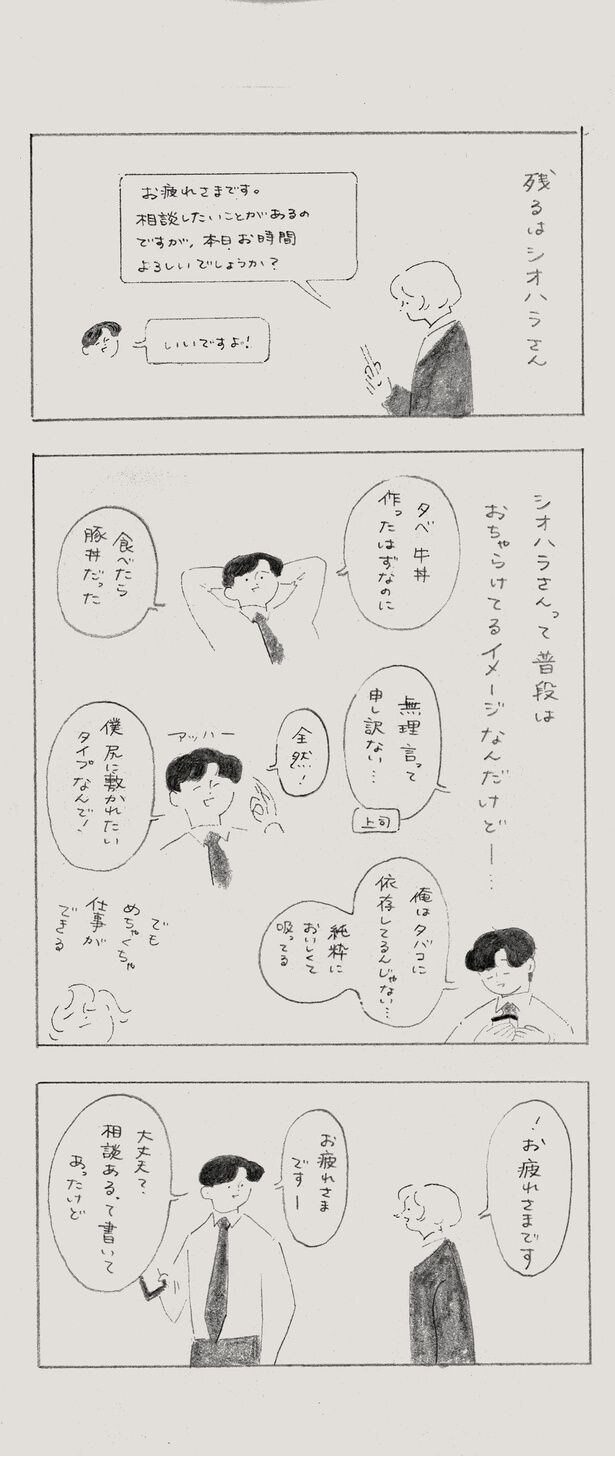 残るはシオハラさん
お疲れさまです。
相談したいことがあるの
ですが、本日お時間
よろしいでしょうか？
いいですよ！
シオハラさんって普段は
おちゃらけてるイメージなんだけどー…
夕べ牛丼
作ったはずなのに
食べたら
豚丼だった
無理言って
申し訳ない…
上司
全然！
アッハー
僕尻に敷かれたい
タイプなんで！
俺はタバコに
依存してるんじゃない…
純粋に
おいしくて
吸ってる
でも
めちゃくちゃ
仕事が
できる
！お疲れさまです
お疲れさま
ですー
大丈夫？
相談あるって書いて
あったけど